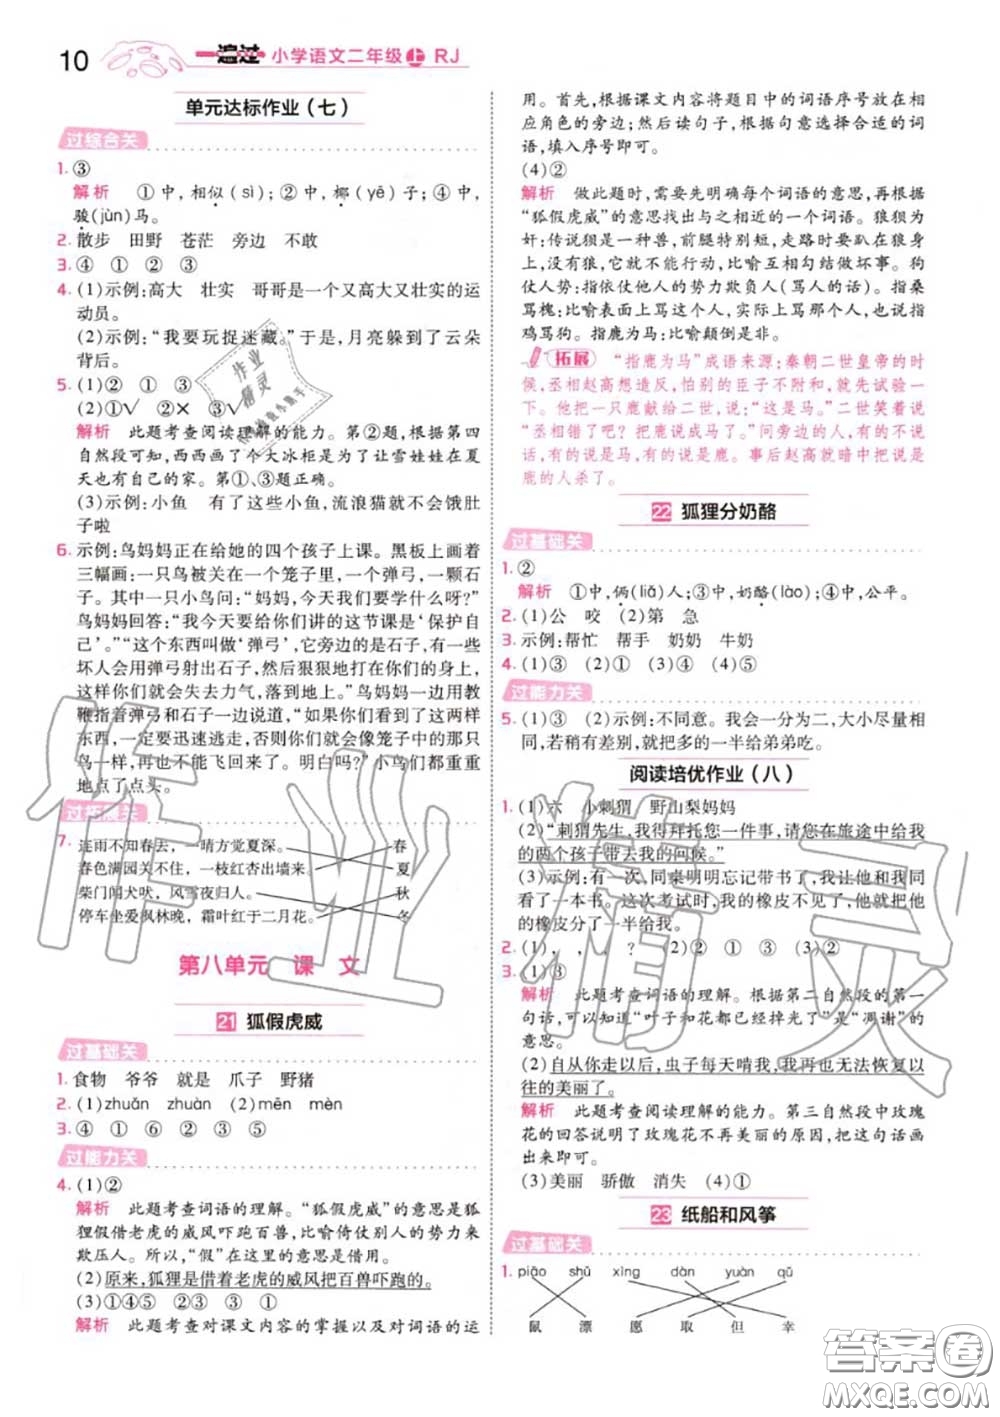 10 一遍过 小学语文二年级 上 RJ
单元达标作业（七）
过综合关
1. ③
解析 ①中，相似（sì）；②中，椰（yē）子；④中，
骏（jùn）马。
2. 散步 田野 苍茫 旁边 不敢
3. ④ ① ② ③
4. (1)示例：高大 壮实 哥哥是一个又高大又壮实的运
动员。
(2)示例：“我要玩捉迷藏。”于是，月亮躲到了云朵
背后。
5. (1)② ① ③
(2)①√ ②× ③√
解析 此题考查阅读理解的能力。第②题，根据第四
自然段可知，西西画了个大冰柜是为了让雪娃娃在夏
天也有自己的家。第①、③题正确。
(3)示例：小鱼 有了这些小鱼，流浪猫就不会饿肚
子啦
6. 示例：鸟妈妈正在给她的四个孩子上课。黑板上画着
三幅画：一只鸟被关在一个笼子里，一个弹弓，一颗石
子。其中一只小鸟问：“妈妈，今天我们要学什么呀？”
鸟妈妈回答：“我今天要给你们讲的这节课是‘保护自
己’。”“这个东西叫做‘弹弓’，它旁边的是石子，有一些
坏人会用弹弓射出石子，然后狠狠地打在你们的身上，
这样你们就会失去力气，落到地上。”鸟妈妈一边用教
鞭指着弹弓和石子一边说道，“如果你们看到了这两样
东西，一定要迅速逃走，否则你们就会像笼子中的那只
鸟一样，再也不能飞回来了。明白吗？”小鸟们都重重
地点了点头。
过拓展关
7. 连雨不知春去，一晴方觉夏深。 春
春色满园关不住，一枝红杏出墙来。 夏
柴门闻犬吠，风雪夜归人。 秋
停车坐爱枫林晚，霜叶红于二月花。 冬
第八单元 课文
21 狐假虎威
过基础关
1. 食物 爷爷 就是 爪子 野猪
2. (1)zhuǎn zhuàn (2)mēn mèn
3. ④ ① ⑥ ② ③ ⑤
过能力关
4. (1)②
解析 此题考查词语的理解。“狐假虎威”的意思是狐
狸假借老虎的威风吓跑百兽，比喻倚仗别人的势力来
欺压人。所以，“假”在这里的意思是借用。
(2)原来，狐狸是借着老虎的威风把百兽吓跑的。
(3)①④⑤ ②③ ③ ①
解析 此题考查对课文内容的掌握以及对词语的运
用。首先，根据课文内容将题目中的词语序号放在相
应角色的旁边；然后读句子，根据句意选择合适的词
语，填入序号即可。
(4)②
解析 做此题时，需要先明确每个词语的意思，再根据
“狐假虎威”的意思找出与之相近的一个词语。狼狈为
奸：传说狈是一种兽，前腿特别短，走路时要趴在狼身
上，没有狼，它就不能行动，比喻互相勾结做坏事。狗
仗人势：指依仗他人的势力欺负人（骂人的话）。指桑
骂槐：比喻表面上骂这个人，实际上骂那个人。指
鸡骂狗。指鹿为马：比喻颠倒是非。
拓展 “指鹿为马”成语来源：秦朝二世皇帝的时
候，丞相赵高想造反，怕别的臣子不附和，就先试验一
下。他把一只鹿献给二世，说：“这是马。”二世笑着说
“丞相错了吧？把鹿说成马了。”问旁边的人，有的不说
话，有的说是马，有的说是鹿。事后赵高就暗中把说是
鹿的人杀了。
22 狐狸分奶酪
过基础关
1. ②
解析 ①中，俩（liǎ）人；③中，奶酪（lào）；④中，公平。
2. (1)公 咬 (2)第 急
3. 示例：帮忙 帮手 奶奶 牛奶
4. (1)③ (2)① (3)④ (4)⑤
过能力关
5. (1)③ (2)示例：不同意。我会一分为二，大小尽量相
同，若稍有差别，就把多的一半给弟弟吃。
阅读培优作业（八）
1. (1)六 小刺猬 野山梨妈妈
(2)“刺猬先生，我得拜托您一件事，请您在旅途中给我
的两个孩子带去我的问候。”
(3)示例：有一次，同桌明明忘记带书了，让他和我同
看了一本书。这次考试时，我的橡皮不见了，他把他的
橡皮分了一半给我。
2. (1)， ， ， ？ (2)② ① ③ (3)②
3. (1)③
解析 此题考查词语的理解。根据第二自然段的第一
句话，可以知道“叶子和花都已经掉光了”是“凋谢”的
意思。
(2)自从你走以后，虫子每天啃我，我再也无法恢复以
往的美丽了。
解析 此题考查阅读理解的能力。第三自然段中玫瑰
花的回答说明了玫瑰花不再美丽的原因，把这句话画
出来即可。
(3)美丽 骄傲 消失 (4)①
23 纸船和风筝
过基础关
1. piāo shǔ xìng dàn yuàn qǔ
鼠 漂 愿 取 但 幸
作业精灵
答案圈
MXQE.COM